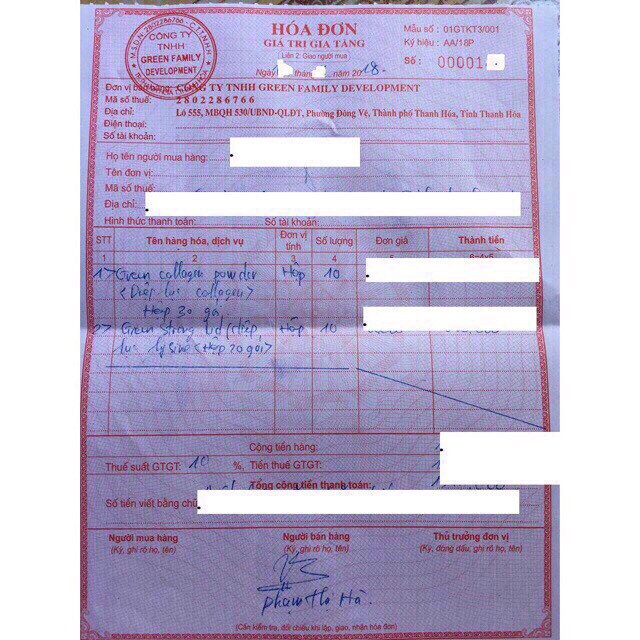 HÓA ĐƠN
GIÁ TRỊ GIA TĂNG
Liên 2: Giao người mua
Mẫu số : 01GTKT3/001
Ký hiệu : AA/18P
Số : 00001
M.S.D.N: 2802286766 - C.T.T.N.H.H
CÔNG TY
TNHH
GREEN FAMILY
DEVELOPMENT
Ngày 2018.
Đơn vị bán hàng: CÔNG TY TNHH GREEN FAMILY DEVELOPMENT
Mã số thuế: 2 8 0 2 2 8 6 7 6 6
Địa chỉ: Lô 555, MBQH 530/UBND-QLĐT, Phường Đông Vệ, Thành phố Thanh Hóa, Tỉnh Thanh Hóa
Điện thoại:
Số tài khoản:
Họ tên người mua hàng:
Tên đơn vị:
Mã số thuế:
Địa chỉ:
Hình thức thanh toán: Số tài khoản:
STT Tên hàng hóa, dịch vụ Đơn vị tính Số lượng Đơn giá Thành tiền
1 2 3 4 6=4x5
1> Green collagen powder Hộp 10
<Diệp lục collagen>
Hộp 30 gói
2> Green strong kid (diệp Hộp 10
lục <Hộp 20 gói>
Cộng tiền hàng:
Thuế suất GTGT: 10 %, Tiền thuế GTGT:
Tổng cộng tiền thanh toán:
Số tiền viết bằng chữ
Người mua hàng Người bán hàng Thủ trưởng đơn vị
(Ký, ghi rõ họ, tên) (Ký, ghi rõ họ, tên) (Ký, đóng dấu, ghi rõ họ, tên)
Phạm Thị Hà.
(Cần kiểm tra, đối chiếu khi lập, giao, nhận hóa đơn)